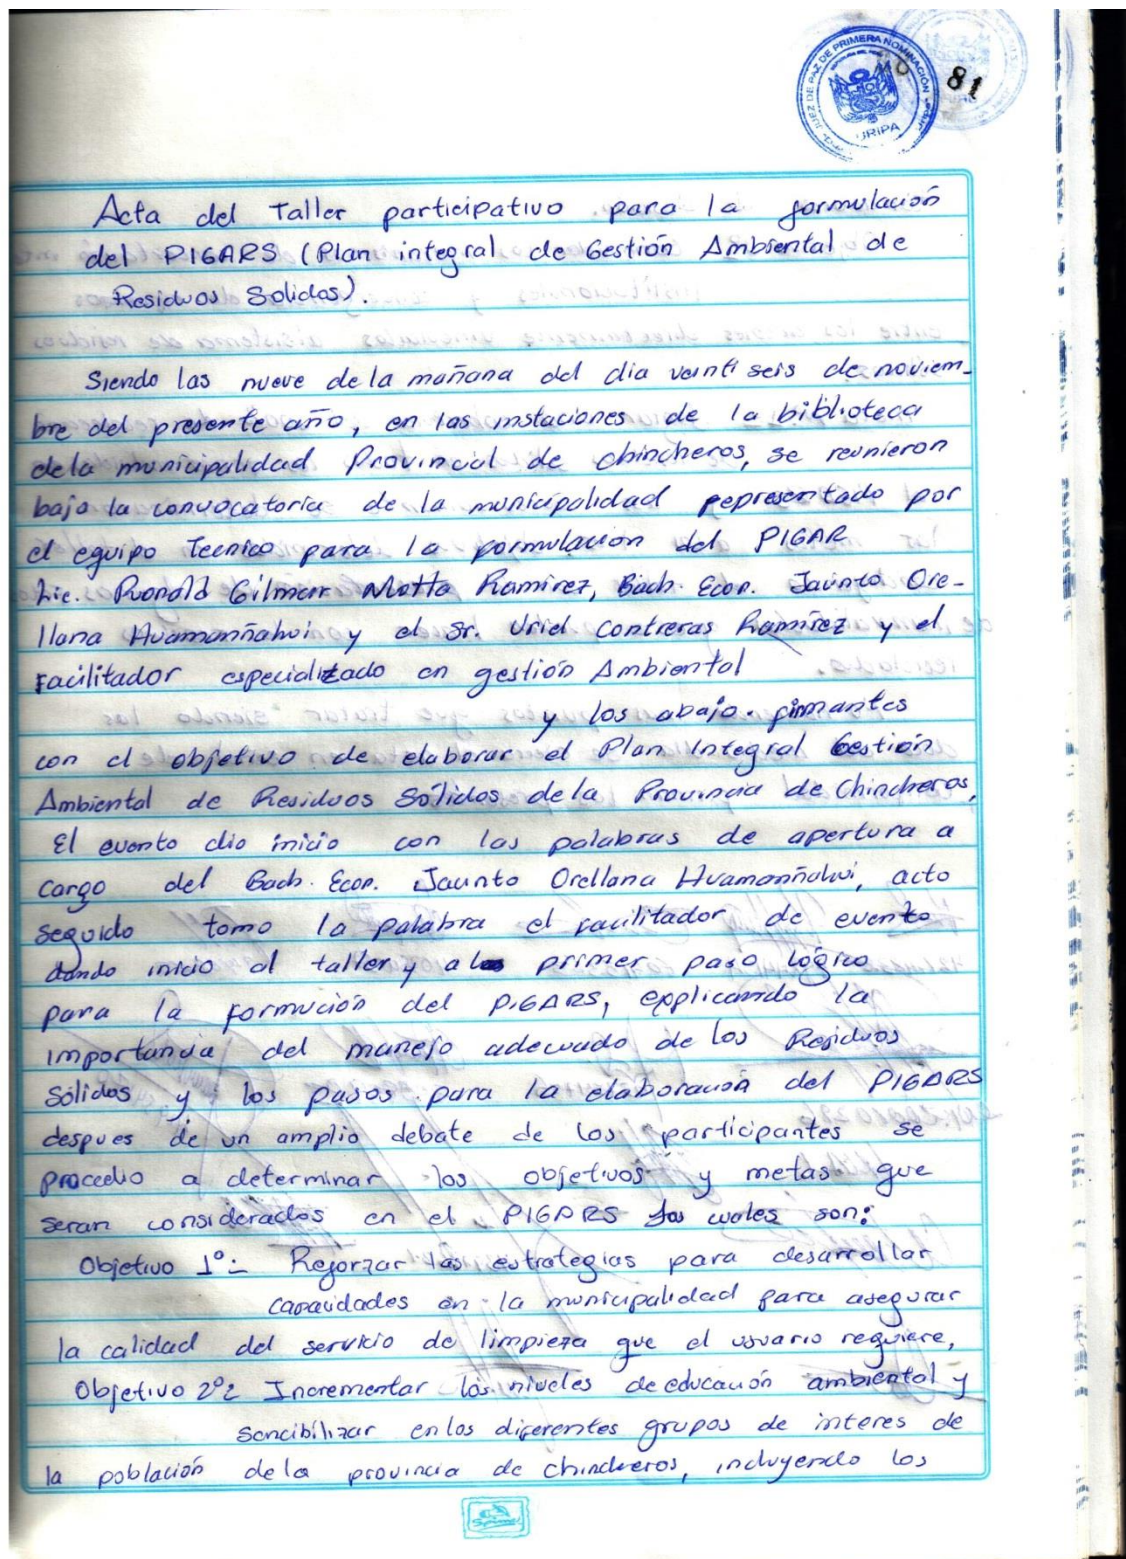 JUEZ DE PAZ DE PRIMERA NOMINACIÓN
URIPA
81
Acta del Taller participativo para la formulación
del PIGARS (Plan integral de Gestión Ambiental de
Residuos Solidos).
Siendo las nueve de la mañana del dia veinti seis de noviem-
bre del presente año, en las instaciones de la biblioteca
de la municipalidad Provincial de chincheros, se reunieron
bajo la convocatoria de la municipalidad pepresentado por
el equipo Tecnico para la formulacion del PIGAR
Lic. Ronald Gilmar Motta Ramirez, Bach. Econ. Jacinto Ore-
llana Huamanñahui y el Sr. Uriel Contreras Ramirez y el
Facilitador especializado en gestión Ambiental
y los abajo firmantes
con el objetivo de elaborar el Plan Integral Gestión
Ambiental de Residuos Sólidos de la Provincia de Chincheros,
El evento dio inicio con las palabras de apertura a
cargo del Bach. Econ. Jacinto Orellana Huamanñahui, acto
seguido tomo la palabra el facilitador de evento
dando inicio al taller y a primer paso lógico
para la formución del PIGARS, explicando la
importancia del manejo adecuado de los Residuos
Sólidos y los pasos para la elaboración del PIGARS
despues de un amplio debate de los participantes se
procedio a determinar los objetivos y metas que
seran considerados en el PIGARS los cuales son:
Objetivo 1°:- Reforzar las estrategias para desarrollar
capacidades en la municipalidad para asegurar
la calidad del servicio de limpieza que el usuario requiere,
Objetivo 2°: Incrementar los niveles de educación ambiental y
sencibilizar en los diferentes grupos de interes de
la población de la provincia de chincheros, incluyendo los